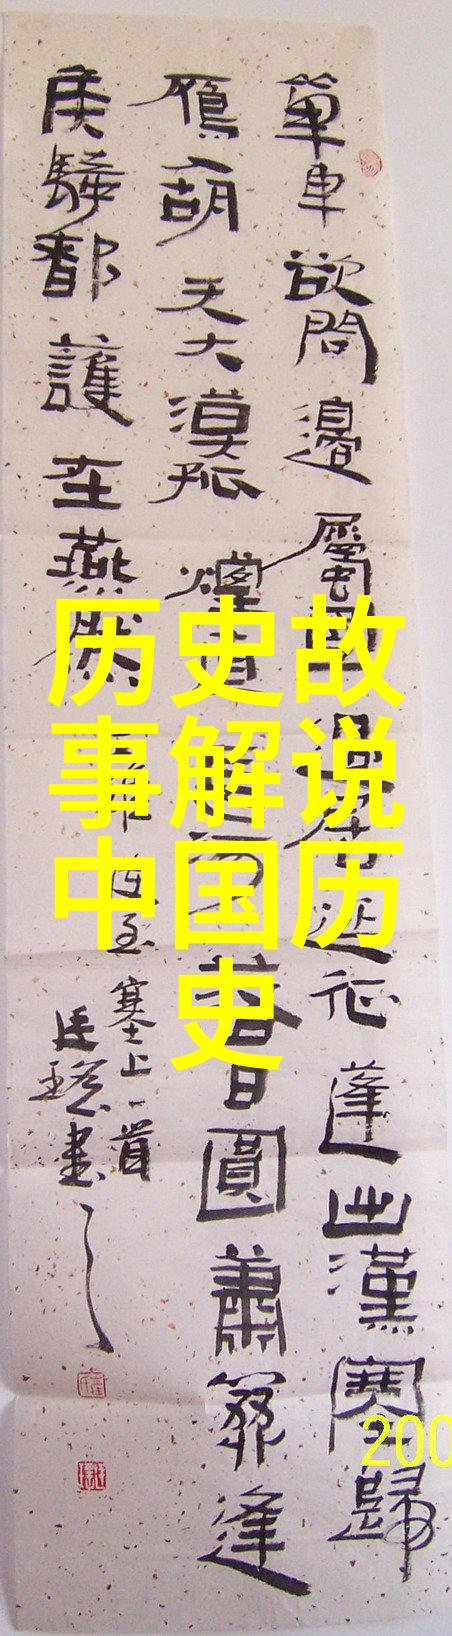 單車欲問邊屬國過居延征蓬出漢塞歸
鴈入胡天大漠孤煙直長河落日圓蕭關逢
侯騎都護在燕然
使至塞上一首
書
历史故
事解说
中国历
史
200